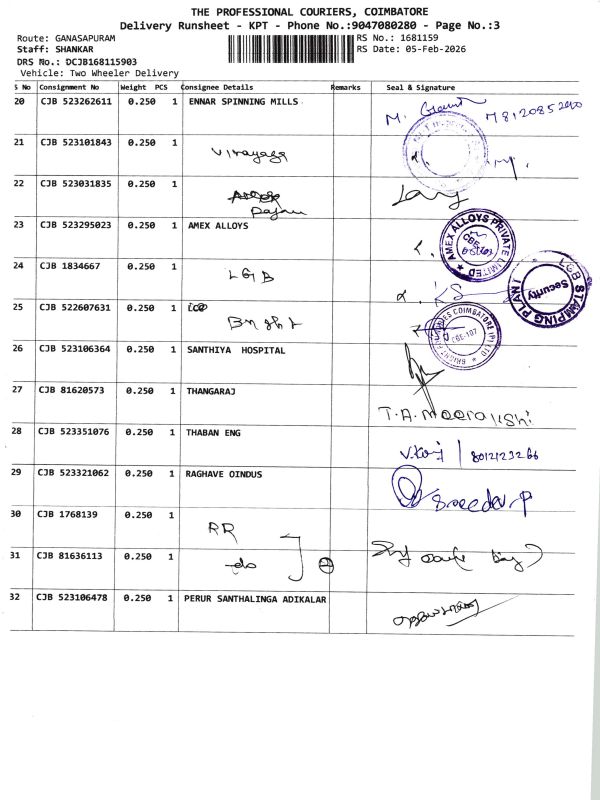 THE PROFESSIONAL COURIERS, COIMBATORE
Delivery Runsheet - KPT - Phone No.:9047080280 - Page No.:3
Route: GANASAPURAM
RS No.: 1681159
Staff: SHANKAR
RS Date: 05-Feb-2026
DRS No.: DCJB168115903
Vehicle: Two Wheeler Delivery
S No Consignment No Weight PCS Consignee Details Remarks Seal & Signature
20 CJB 523262611 0.250 1 ENNAR SPINNING MILLS 7812085200
21 CJB 523101843 0.250 1 Virayaga
22 CJB 523031835 0.250 1
23 CJB 523295023 0.250 1 AMEX ALLOYS
AMEX ALLOYS PRIVATE LIMITED
24 CJB 1834667 0.250 1 LGB
LGB STAMPING PLANT
Security
25 CJB 522607631 0.250 1 Bright
CBE-107
26 CJB 523106364 0.250 1 SANTHIYA HOSPITAL
27 CJB 81620573 0.250 1 THANGARAJ T.A. Meenakshi
28 CJB 523351076 0.250 1 THABAN ENG
29 CJB 523321062 0.250 1 RAGHAVE OINDUS
30 CJB 1768139 0.250 1 RR
31 CJB 81636113 0.250 1 do 2
32 CJB 523106478 0.250 1 PERUR SANTHALINGA ADIKALAR